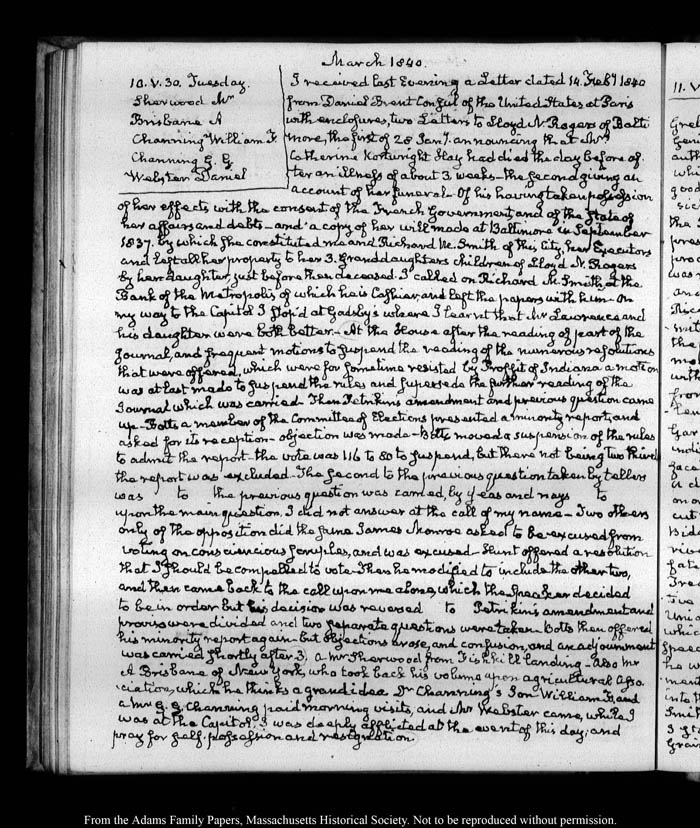 March 1840.
10. V. 30. Tuesday.
Sherwood Mr
Brisbane A
Channing William F.
Channing G. G.
Webster Daniel
I received last Evening a Letter dated 14. Feby 1840
from Daniel Brent Consul of the United States at Paris
with enclosures, two Letters to Lloyd N. Rogers of Balti
more, the first of 28 Jany. announcing that Mrs
Catherine Kortwright Hay had died the day before of
ter an illness of about 3 weeks—the second giving an
account of her funeral. Of his having taken possession
of her effects with the consent of the French Government and of the state of
her affairs and debts—and a copy of her will made at Baltimore in September
1837. by which she constituted me and Richard M. Smith of this City, her Executors
and left all her property to her 3. Granddaughters children of Lloyd N. Rogers
by her daughter, just before then deceased. I called on Richard M. Smith, at the
Bank of the Metropolis of which he is Cashier, and left the papers with him. On
my way to the Capitol I stop'd at Gadsby's where I learnt that Mr Lawrence and
his daughter were both better.—At the House after the reading of part of the
Journal, and frequent motions to suspend the reading of the numerous resolutions
that were offered, which were for sometime resisted by Proffit of Indiana a motion
was at last made to suspend the rules and supersede the further reading of the
Journal which was carried—Then Petrikin's amendment and previous question came
up—Botts a member of the Committee of Elections presented a minority report, and
asked for its reception—objection was made—Botts moved a suspension of the rules
to admit the report—the vote was 116 to 80 to suspend, but there not being two thirds
the report was excluded—The second to the previous question taken by tellers
was to the previous question was carried, by yeas and nays to
upon the main question, I did not answer at the call of my name—Two others
only of the opposition did the same James Monroe asked to be excused from
voting on consciencious scruples, and was excused—Hunt offered a resolution
that I should be compelled to vote. Then he modified to include the other two,
and then came back to the call upon me alone, which the Speaker decided
to be in order but his decision was reversed to Petrikin's amendment and
proviso were divided and two separate questions were taken. Botts then offered
his minority report again—but objections arose, and confusion, and an adjournment
was carried shortly after 3, a Mr Sherwood from Fishkill landing—also Mr
A Brisbane of New York, who took back his volume upon agricultural asso
ciation, which he thinks a grand idea Dr Channing's Son William F. and
a Mr G. G. Channing paid morning visits, and Mr Webster came, while I
was at the Capitol. I was deeply afflicted at the event of this day, and
pray for self-possession and resignation.
11. V
From the Adams Family Papers, Massachusetts Historical Society. Not to be reproduced without permission.